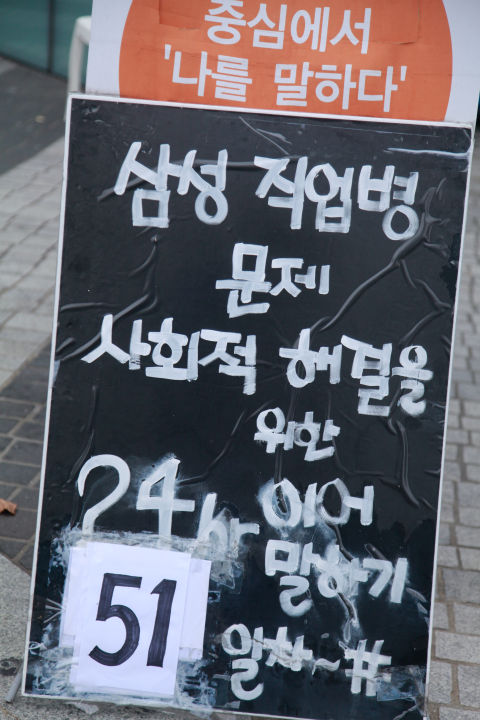 중심에서
'나를 말하다'
삼성 직업병
문제
사회적 해결을
위한
24hr 이어
말하기
51
일차~#